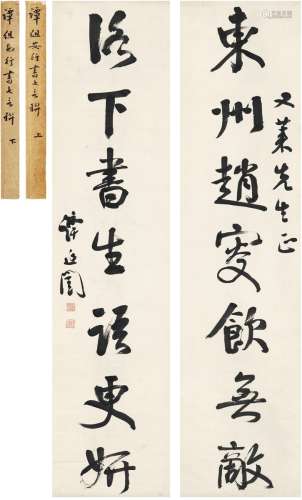 東州趙叟飲無敵
又萊先生正
洛下書生語更妍
譚延闓
譚組安行書七言聯 上
譚組安行書七言聯 下